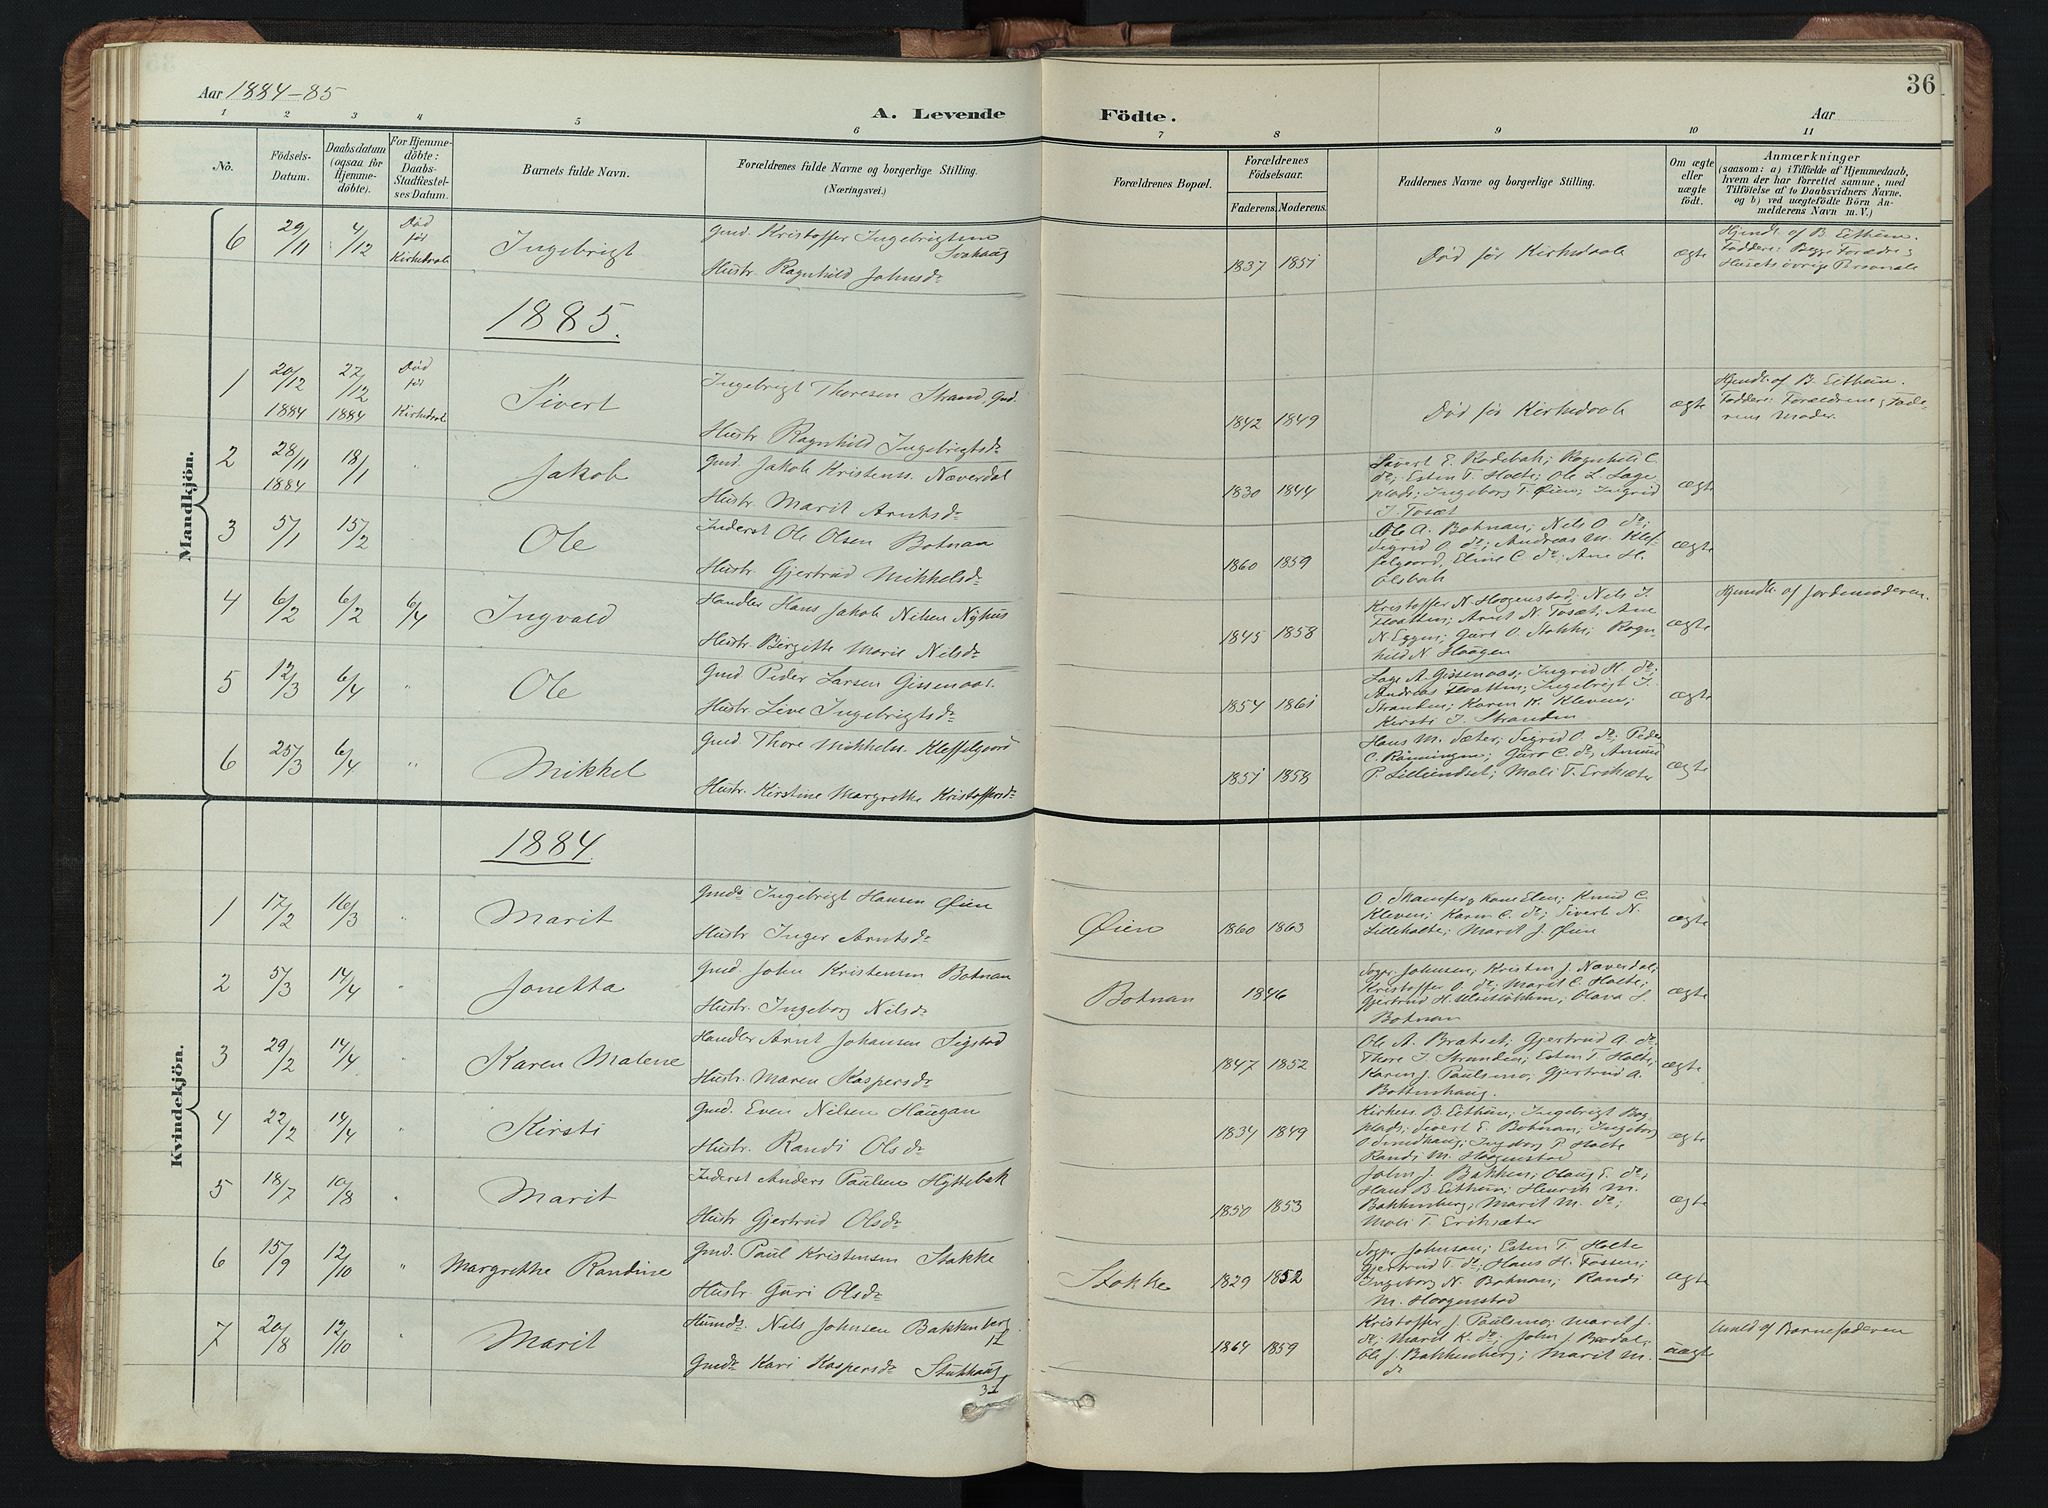 Aar 1884-85
A. Levende Födte.
Aar
36
1 2 3 4 5 6 7 8 9 10 11
No.
Födsels-Datum.
Daabsdatum (ogsaa for Hjemmedöbte).
For Hjemmedöbte: Daabs-Stadfæstelses Datum.
Barnets fulde Navn.
Forældrenes fulde Navne og borgerlige Stilling.
(Næringsvei.)
Forældrenes Bopæl.
Forældrenes Födselsaar.
Faderens. Moderens.
Faddernes Navne og borgerlige Stilling.
Om ægte eller uægte födt.
Anmærkninger
(saasom: a) i Tilfælde af Hjemmedaab,
hvem der har forrettet samme, med
Tilföielse af to Daabsvidners Navne.
og b) ved uægtefödte Börn An-
melderens Navn m. V.)
Mandkjön.
6 29/11 4/12 Död før Kirkedaab Ingebrigt
Gmd. Kristoffer Ingebrigtsen Svahaug
Hustr. Ragnhild Johnsdr
1837 1851 Död før Kirkedaab ægte
Hjmdt. af B. Eithun.
Faddere: Begge Forældre,
Husets øvrige Personale
1885.
1 20/12 1884 22/12 1884 Död før Kirkedaab Sivert
Ingebrigt Thoresen Strand, Gmd.
Hustr. Ragnhild Ingebrigtsdr
1842 1849 Död før Kirkedaab ægte
Hjmdt. af B. Eithun.
Faddere: Forældrene, Fade-
rens Moder.
2 28/11 1884 18/1 " Jakob
Gmd. Jakob Kristens. Næverdal
Hustr. Marit Arntsdr
1830 1844
Sivert E. Rodebak; Ragnhild C.
dr; Esten T. Holte; Ole L. Lage
plads; Ingeborg T. Øien; Ingrid
J. Tosæt
ægte
3 5/1 15/2 " Ole
Inderst Ole Olsen Botnan
Hustr. Gjertrud Mikkelsdr
1860 1859
Ole A. Botnan; Nils O. do;
Sigrid O. do; Andreas M. Klef-
felgaard, Eline C. do; Ane H.
Olsbak
ægte
4 6/2 6/2 6/4 Ingvald
Handler Hans Jakob Nilsen Nyhus
Hustr. Birgitte Marie Nilsdr
1845 1858
Kristoffer N. Haagenstad, Nils J.
Floatten; Arnt N. Tosæt; Ane
N. Eggen; Guro O. Stokke; Ragn
hild N. Haugen
ægte
Hjemdbt. af Jordemoderen.
5 12/3 6/4 " Ole
Gmd Peder Larsen Gissenaas.
Hustr. Live Ingebrigtsdr
1854 1861
Lage A. Gissenaas; Ingrid H. do;
Andreas Floatten; Ingebrigt J.
Stranden; Karen K. Kleven;
Kirsti J. Stranden
ægte
6 25/3 6/4 " Mikkel
Gmd Thore Mikkels. Kleffelgaard
Hustr. Kirstine Margrethe Kristoffersdr
1851 1858
Hans M. Sæter; Sigrid O. do; Peder
C. Rønningen, Guro C. do, Amund
P. Lilleindset; Mali T. Eriksæter
ægte
Kvindekjön.
1884.
1 17/2 16/3 " Marit
Gmds Ingebrigt Hansen Øien
Hustr Inger Arntsdr
Øien 1860 1863
Elen; Knud C.
Kleven; Karen C. do; Sivert N.
Lilleholte; Marit J. Øien
ægte
2 5/3 14/4 " Jonetta
Gmd. John Kristensen Botnan
Hustr. Ingeborg Nilsdr
Botnan 1846
Sogpr. Johnsen; Kristen J. Næverdal;
Kristoffer O. do; Marit C. Holte;
Gjertrud H. Olava S.
Botnan
ægte
3 29/2 14/4 " Karen Malene
Handler Arnt Johansen Sigstad
Hustr. Maren Kaspersdr
1847 1852
Ole A. Bratset; Gjertrud A. do;
Thore J. Stranden; Esten T. Holte;
Karen J. Paulsmo; Gjertrud A.
Bottenhaug.
ægte
4 22/2 14/4 " Kirsti
Gmd. Even Nilsen Haugan
Hustr. Randi Olsdr
1834 1849
Kirkes. B. Eithun; Ingebrigt Bog-
plads; Sivert E. Botnan; Ingeborg
O. Svindhaug; Ingeborg P. Holte
Randi M. Haagenstad
ægte
5 18/7 10/8 " Marit
Inderst Anders Paulsen Hyttebak
Hustr Gjertrud Olsdr
1850 1853
John J. Bakken; Olaug E. do;
Hans B. Eithun; Henrik M.
Bakkenberg; Marit M. do;
Mali T. Eriksæter
ægte
6 15/9 12/10 " Margrethe Randine
Gmd. Paul Kristensen Stokke
Hustr Guri Olsdr
Stokke 1829 1852
Sogpr Johnsen; Esten T. Holte
Gjertrud T. do; Hans H. Fossen;
Ingeborg N. Botnan; Randi
M. Haagenstad
ægte
7 20/8 12/10 " Marit
Nils Johnsen Bakkenberg
Gmdr Kari Kaspersdr Stukhaug
1864 1859
Kristoffer J. Paulsmo; Marit J.
do; Marit K. do; John J. Bordal;
Ole J. Bakkenberg; Marit M.
do
uægte
Anmeld af Barnefaderen